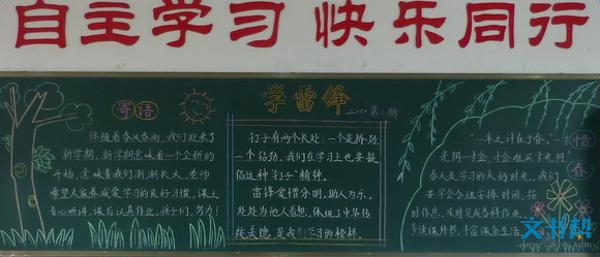 自主学习 快乐同行
寄语
伴随着春风春雨，我们迎来了
新学期，新学期意味着一个全新的
开始，意味着我们渐渐长大，老师
希望大家养成爱学习的良好习惯，课上
专心听讲，课后认真作业，孩子们，努力！
学雷锋
第 期
钉子有两个长处：一个是挤劲，
一个钻劲，我们在学习上也要提
倡这种"钉子"精神。
雷锋爱憎分明，助人为乐，
处处为他人着想，体现了中华传
统美德，是我们学习的榜样。
惜春
"一年之计在于春，""一寸
光阴一寸金，寸金难买寸光阴"
春天是学习的大好时光，我们
要学会合理安排时间，按
时作息，及时完成各科作业，
多读课外书，丰富课余生活
文书帮